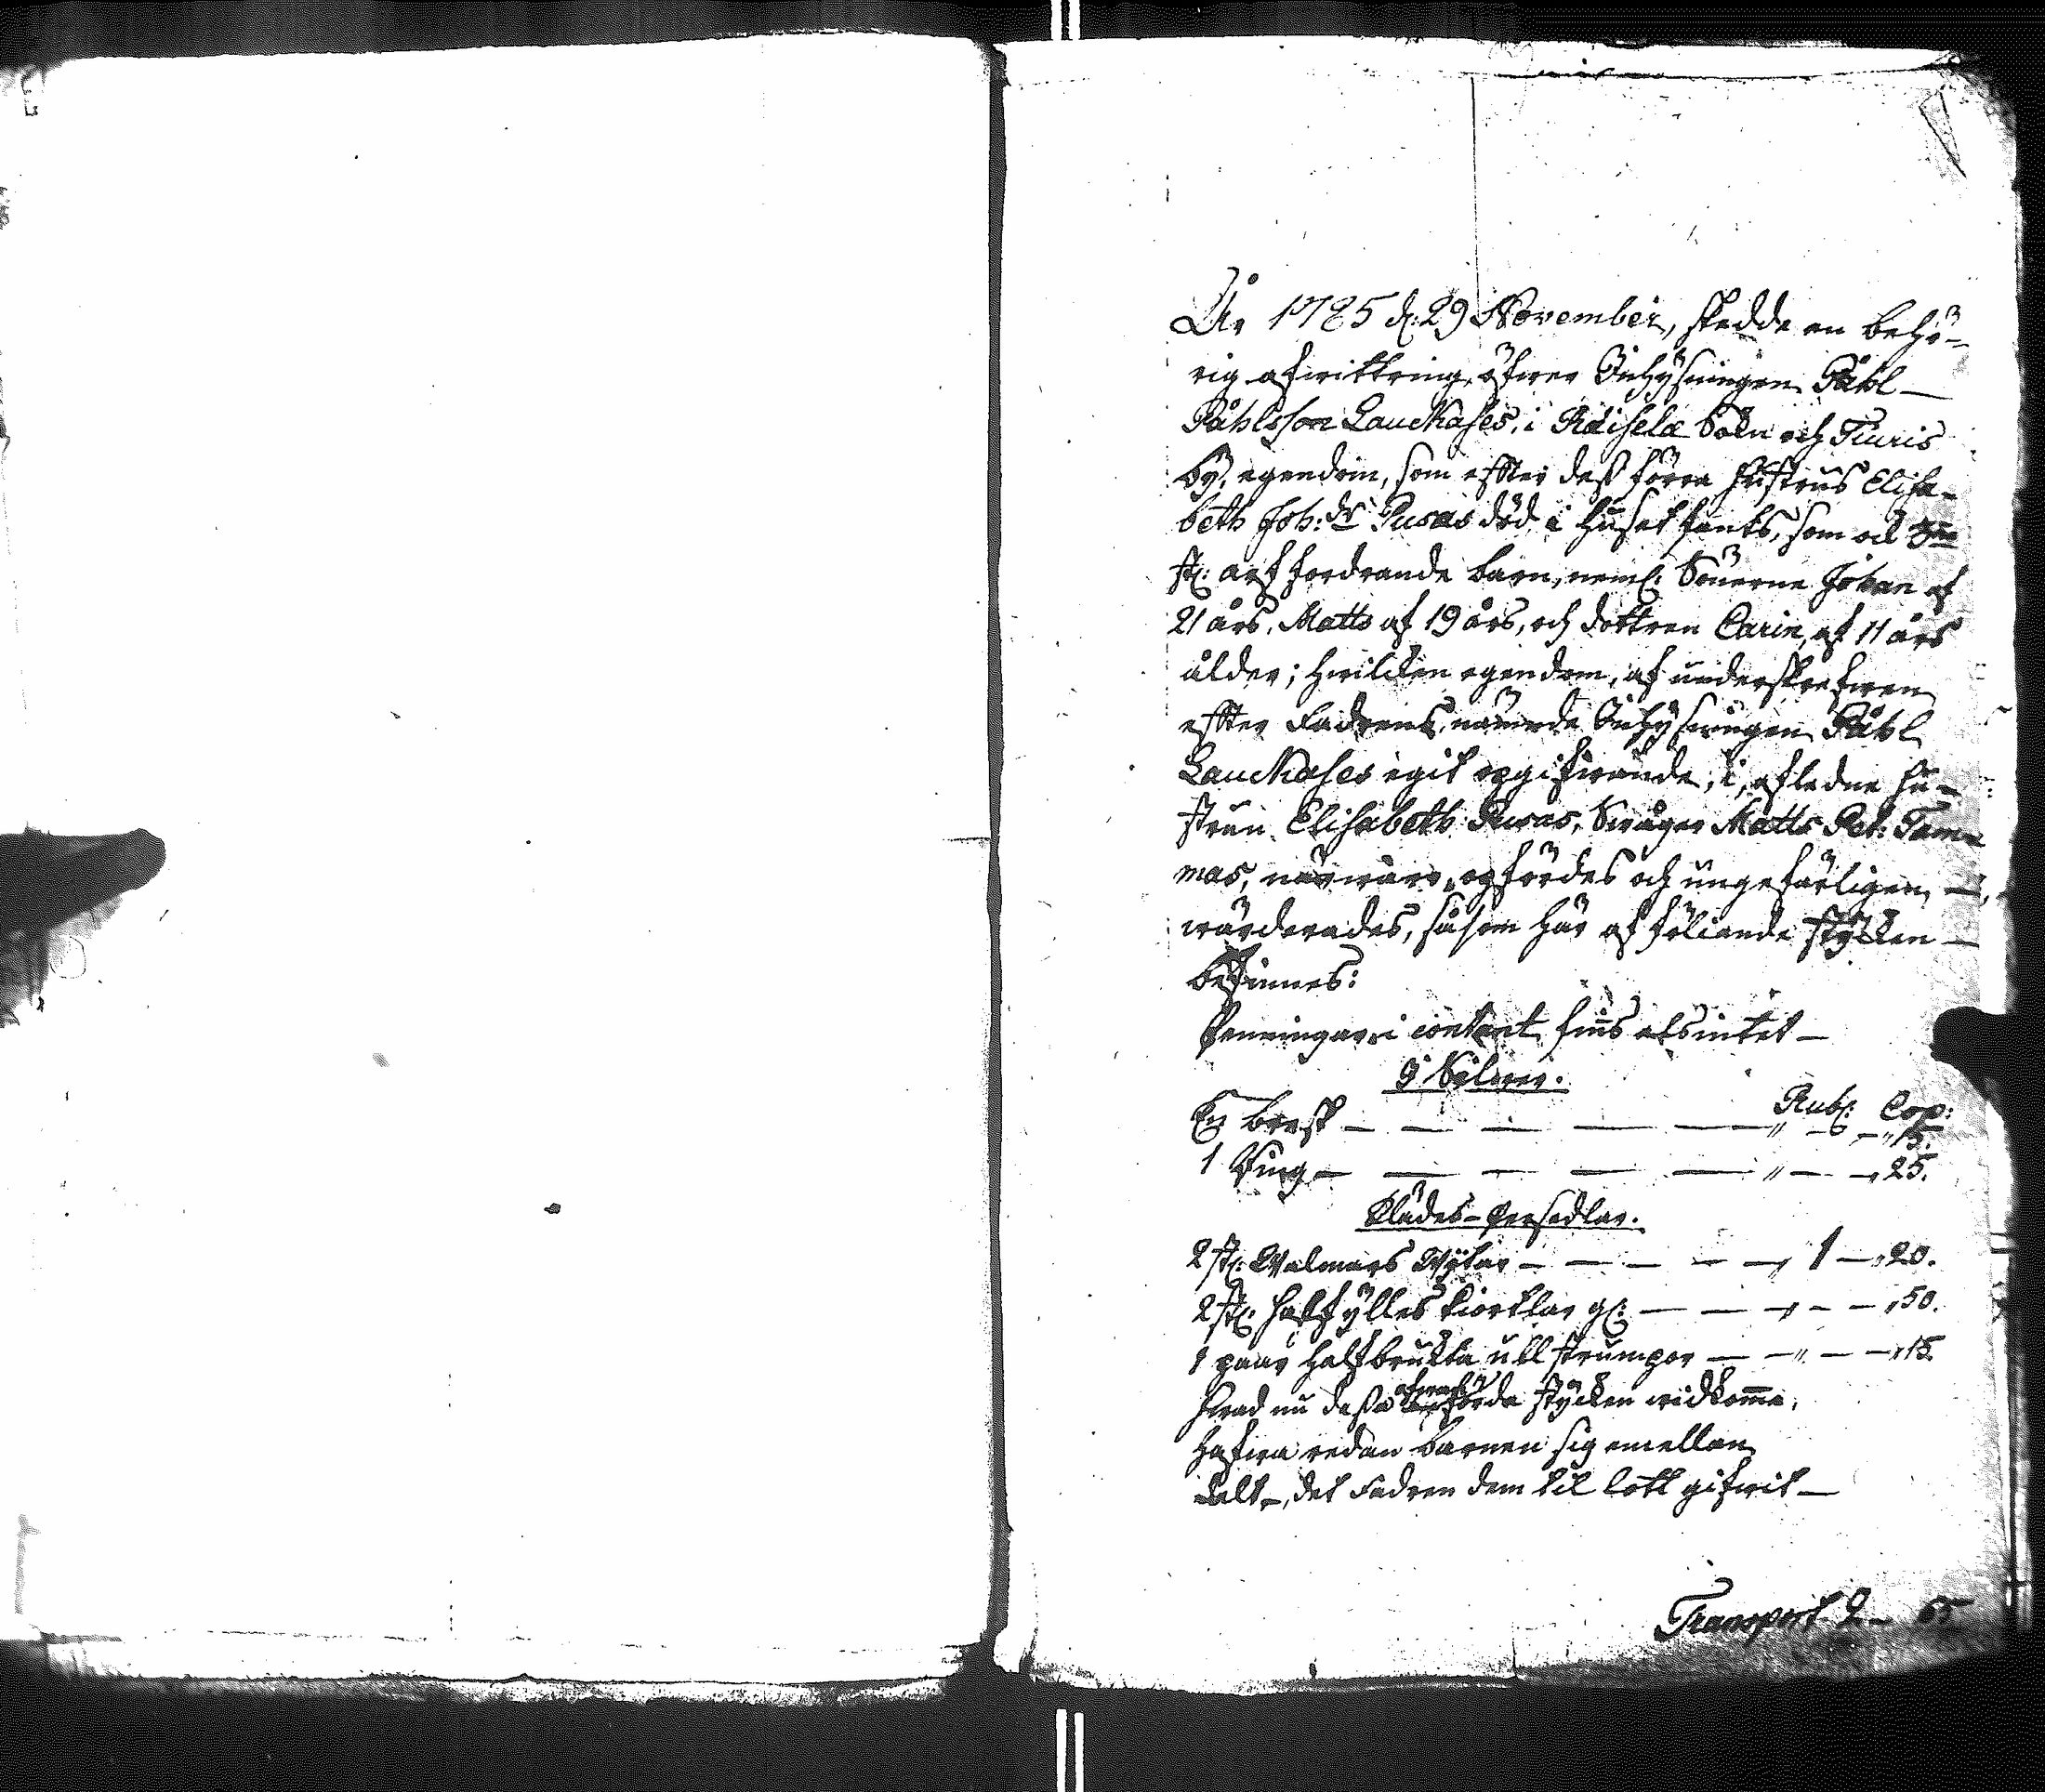 År 1785 d: 29 November, skedde en behö-
rig afwittring, öfwer Inhysningen Påhl
Påhlsson Lauckases, i Räiselæ Sokn och Tiuris
by, egendom, som effter dess förra hustrus Elisa-
beth Joh: dr Pusas död i huset fants, som od 3ne
st: arf fordrande barn, neml: Sönerne Johan af
21 års, Matts af 19 års, och dottren Carin, af 11 års
ålder; hwilcken egendom, af underskrefwen
effter Fadrens, nämde Inhysningen Påhl
Lauckases egit opgifwande, i, afledne hu-
strun Elisabeth Pusas, Swåger Matts Pet: Tam-
mas, närwaro, opfördes och ungefärligen
wärderades, såsom här af föliande stycken
befinnes:
Penningar i contant fins alsintet
I Silwer.
Rub: Cop:
En bresk — — — — — " — " 15.
1 Ring — — — — — " — " 25.
Klädes-Persedlar.
2 st: Walmars — — — — " 1 — " 20.
2 st: halfylles kiortlar gl: — — " — " 50.
1 paar halfbrukta ull strumpor — " — " 15.
Hwad nu dessa förda stycken widkomma,
hafwa redan barnen sig emellan
delt, det Fadren dem til lott gifwit
Transport 2 — 65